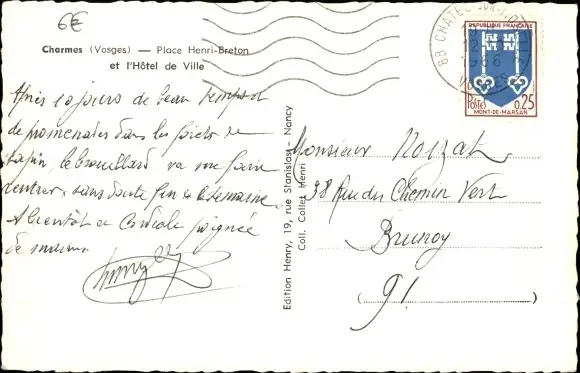 6€
Charmes (Vosges) — Place Henri-Breton
et l'Hôtel de Ville
88 CHATEL-SUR-MOSELLE
12
1966
VOSGES
REPUBLIQUE FRANÇAISE
POSTES 0,25
MONT-DE-MARSAN
Après 10 jours de beau temps et
de promenades dans les forêts de
sapin, le brouillard va me faire
rentrer, sans doute fin de semaine.
A bientôt et Cordiale poignée
de mains.
Edition Henry, 19, rue Stanislas - Nancy
Coll. Collet Henri
Monsieur Noizat
38 Rue du Chemin Vert
Brunoy
(91)